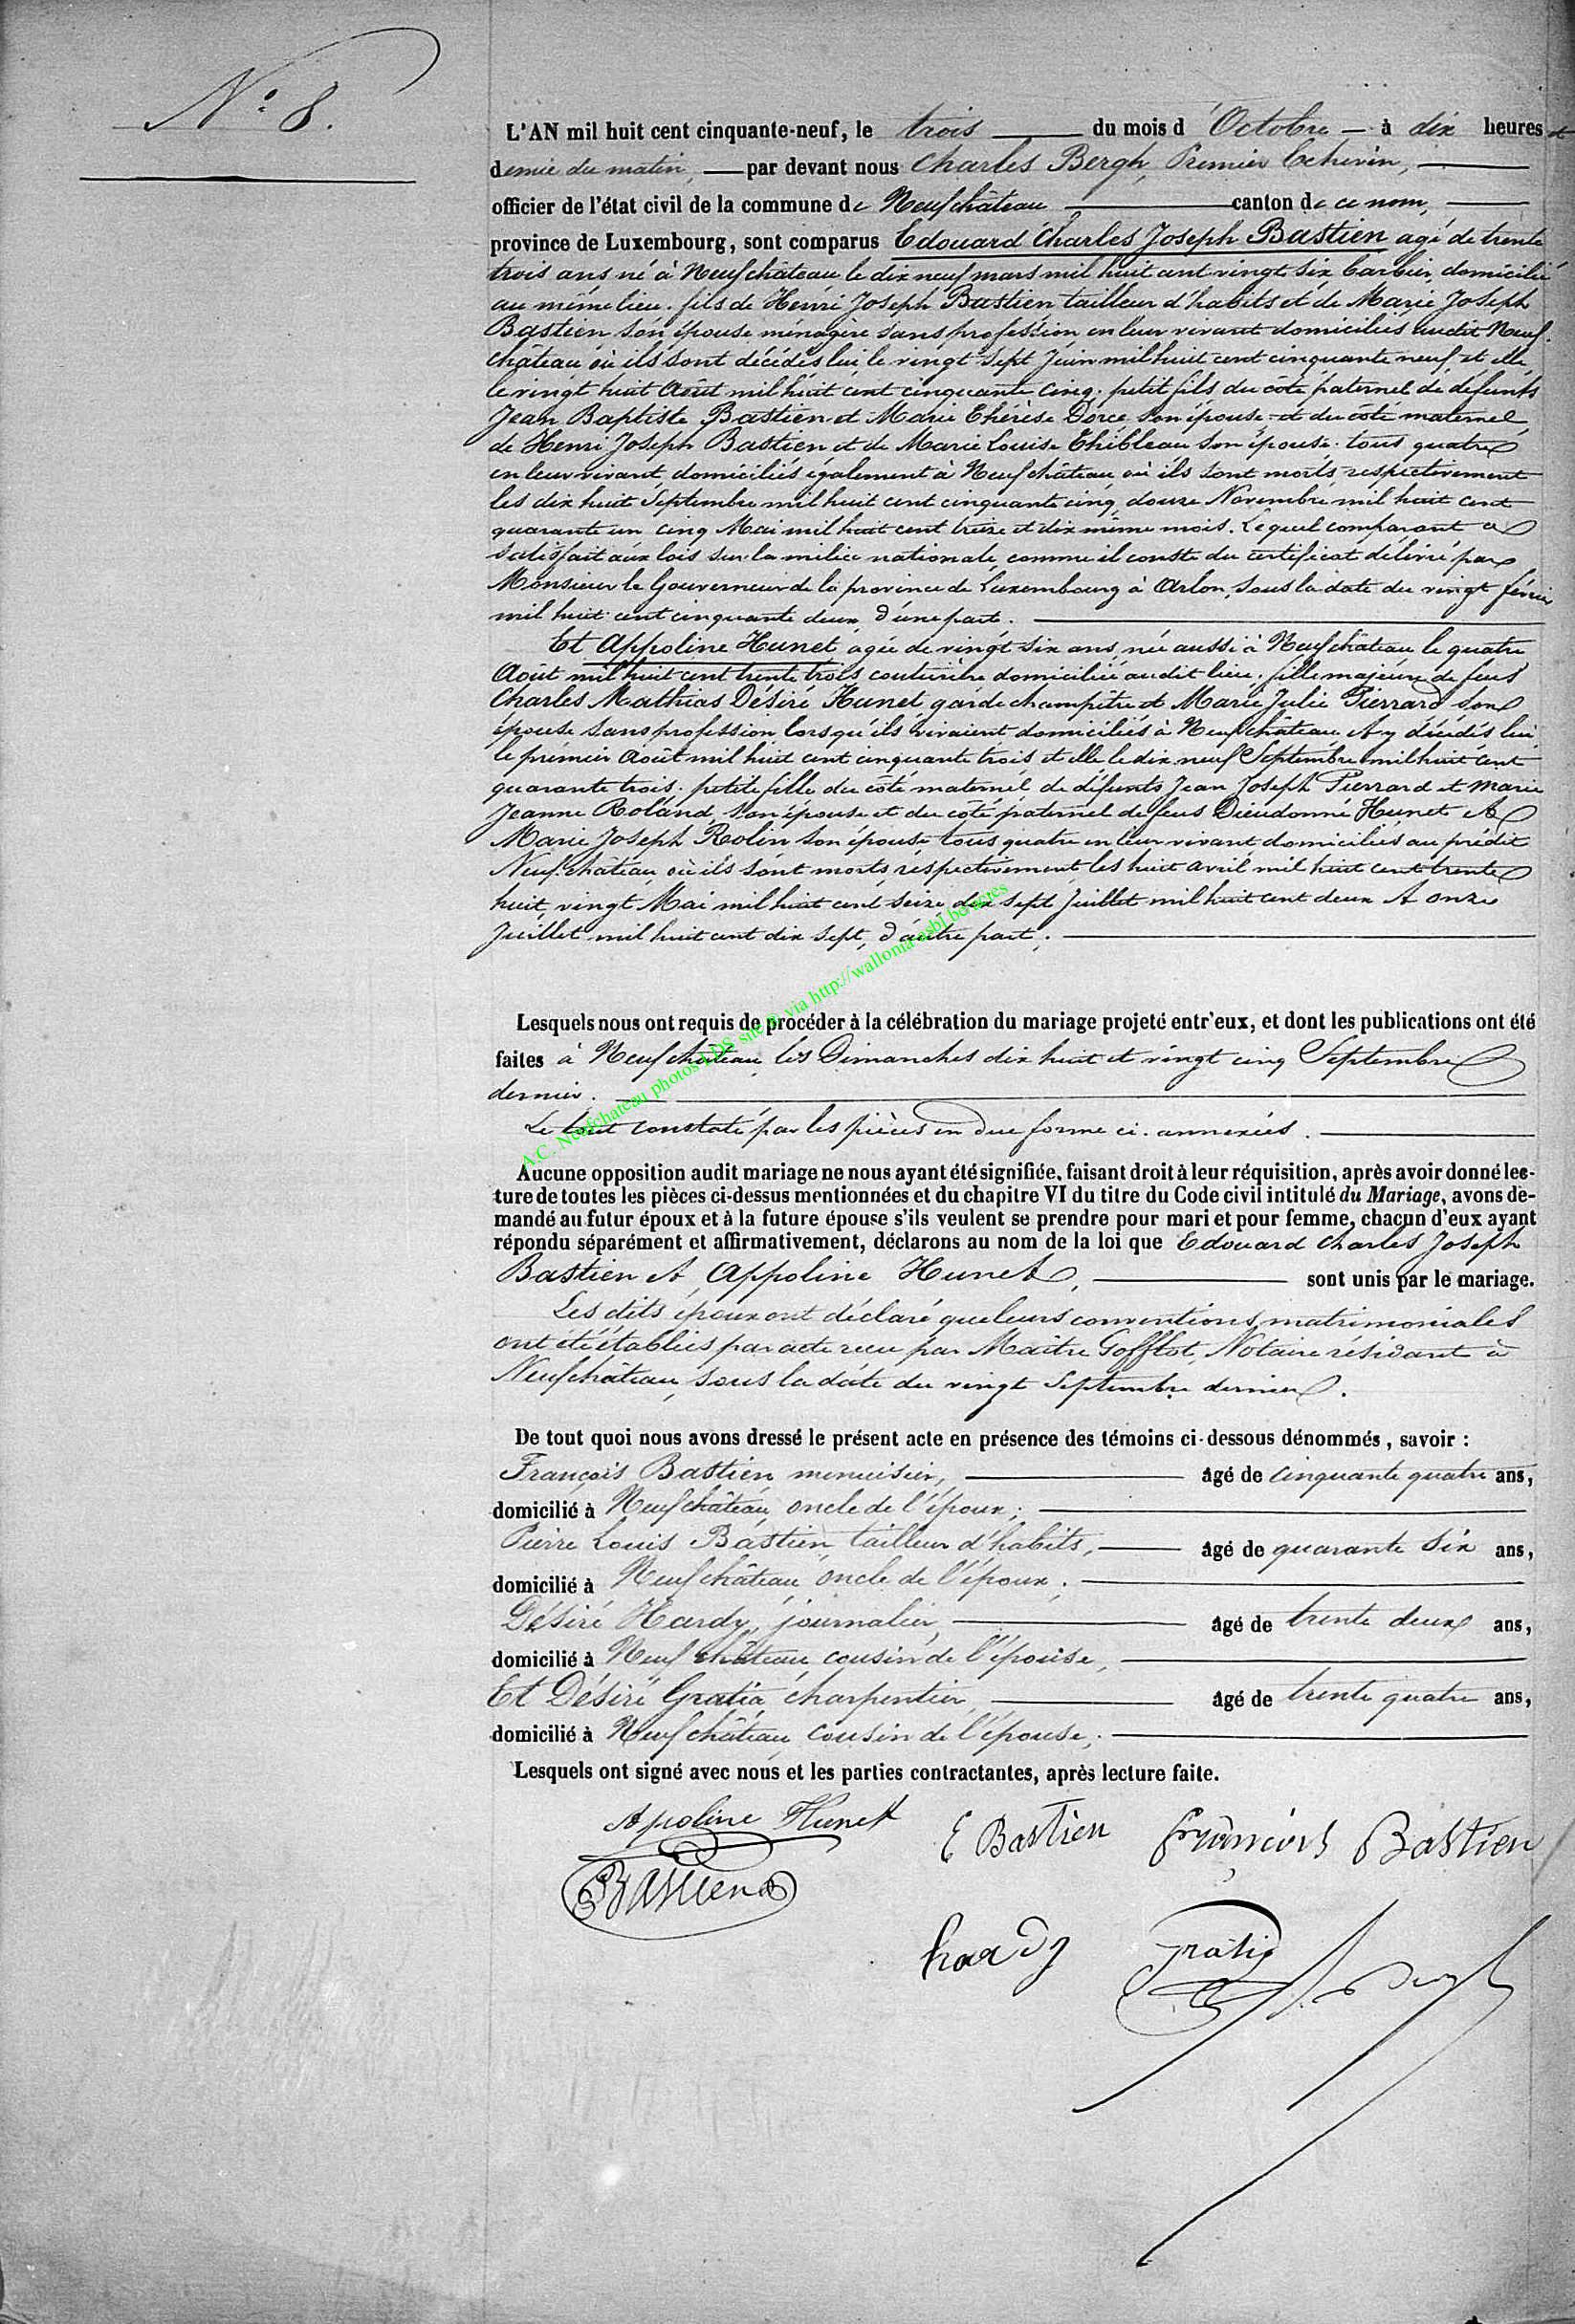 N° 8.
L'AN mil huit cent cinquante-neuf, le trois du mois d'Octobre à dix heures et
demie du matin, par devant nous Charles Bergh, Premier Echevin,
officier de l'état civil de la commune de Neufchâteau canton de ce nom,
province de Luxembourg, sont comparus Edouard Charles Joseph Bastien agé de trente
trois ans né à Neufchâteau le dix neuf mars mil huit cent vingt six barbier, domicilié
au même lieu. fils de Henri Joseph Bastien tailleur d'habits et de Marie Joseph
Bastien son épouse ménagère sans profession en leur vivant domiciliés audit Neuf-
château où ils sont décédés lui, le vingt sept Juin mil huit cent cinquante neuf et elle
le vingt huit Août mil huit cent cinquante cinq. petit fils du côté paternel de défunts
Jean Baptiste Bastien et Marie Thérèse Dorce son épouse et du coté maternel,
de Henri Joseph Bastien et de Marie Louise Thibleau son épouse. tous quatre
en leur vivant, domiciliés également à Neufchâteau où ils sont morts respectivement
les dix huit Septembre mil huit cent cinquante cinq, douze Novembre mil huit cent
quarante un cinq Mai mil huit cent treize et dix même mois. Lequel comparant a
satisfait aux lois sur la milice nationale, comme il conste du certificat délivré par
Monsieur le Gouverneur de la province de Luxembourg à Arlon, sous la date du vingt février
mil huit cent cinquante deux, d'une part.
Et Appoline Hunet, agée de vingt six ans, née aussi à Neufchâteau le quatre
Août mil huit cent trente trois couturière domiciliée audit lieu. fille majeure de feus
Charles Mathias Désiré Hunet garde champêtre et Marie Julie Pierrard son
épouse sans profession lorsqu'ils vivaient domiciliés à Neufchâteau et y décédés lui
le premier Août mil huit cent cinquante trois et elle le dix neuf Septembre mil huit cent
quarante trois. petite fille du côté maternel de défunts Jean Joseph Pierrard et Marie
Jeanne Roland, son épouse et du côté paternel de feus Dieudonné Hunet et
Marie Joseph Rolin son épouse tous quatre en leur vivant domiciliés au prédit
Neufchâteau où ils sont morts respectivement les huit avril mil huit cent trente
huit, vingt Mai mil huit cent seize dix sept Juillet mil huit cent deux et onze
Juillet mil huit cent dix sept, d'autre part.
Lesquels nous ont requis de procéder à la célébration du mariage projeté entr'eux, et dont les publications ont été
faites à Neufchâteau, les Dimanches dix huit et vingt cinq Septembre
dernier.
Le tout constaté par les pièces en due forme ci-annexées.
A.C. Neufchateau photos LDS site via http://wallonia-asbl.be/actes
Aucune opposition audit mariage ne nous ayant été signifiée, faisant droit à leur réquisition, après avoir donné lec-
ture de toutes les pièces ci-dessus mentionnées et du chapitre VI du titre du Code civil intitulé du Mariage, avons de-
mandé au futur époux et à la future épouse s'ils veulent se prendre pour mari et pour femme, chacun d'eux ayant
répondu séparément et affirmativement, déclarons au nom de la loi que Edouard Charles Joseph
Bastien et Appoline Hunet, sont unis par le mariage.
Les dits époux ont déclaré que leurs conventions matrimoniales
ont été établies par acte recu par Maître Gofflot, Notaire résidant à
Neufchâteau, sous la date du vingt Septembre dernier.
De tout quoi nous avons dressé le présent acte en présence des témoins ci-dessous dénommés, savoir :
François Bastien menuisier, âgé de cinquante quatre ans,
domicilié à Neufchâteau, oncle de l'époux ;
Pierre Louis Bastien, tailleur d'habits, âgé de quarante six ans,
domicilié à Neufchâteau, oncle de l'époux ;
Désiré Hardy, journalier, âgé de trente deux ans,
domicilié à Neufchâteau cousin de l'épouse,
Et Désiré Gratia, charpentier, âgé de trente quatre ans,
domicilié à Neufchâteau, cousin de l'épouse ;
Lesquels ont signé avec nous et les parties contractantes, après lecture faite.
Apoline Hunet E Bastien françois Bastien
PL Bastien
hardy gratia